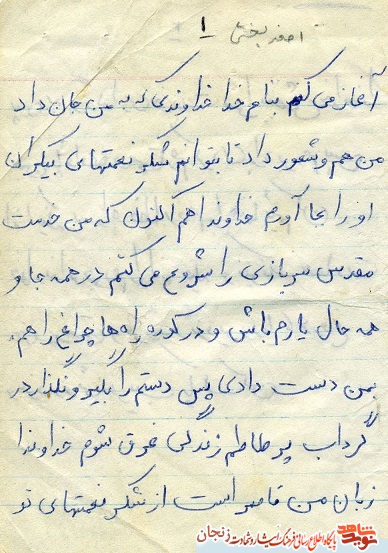 ۱
اصغر بخشی
آغاز می کنم بنام خدا خداوندی که به من جان داد
من هم و شعور داد تا بتوانم شکر نعمتهای بیکران
او را بجا آورم خداوندا هم اکنون که من خدمت
مقدس سربازی را شروع می کنم در همه جا و
همه حال یارم باش و در کوره راه ها چراغ راهم
بمن دست دادی پس دستم را بگیر و نگذار در
گرداب پر طلاطم زندگی غرق شوم خداوندا
زبان من قاصر است از شکر نعمتهای تو
نوید شاهد
پایگاه اطلاع رسانی فرهنگ ایثار و شهادت زنجان